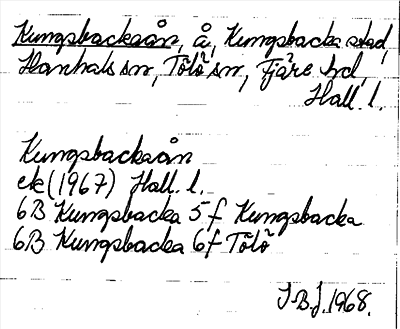 Kungsbackaån, å, Kungsbacka stad,
Hanhals sn, Tölö sn, Fjäre hd,
Hall. l.
Kungsbackaån
ek (1967) Hall. l.
6B Kungsbacka 5f Kungsbacka
6B Kungsbacka 6f Tölö
I.B.J. 1968.